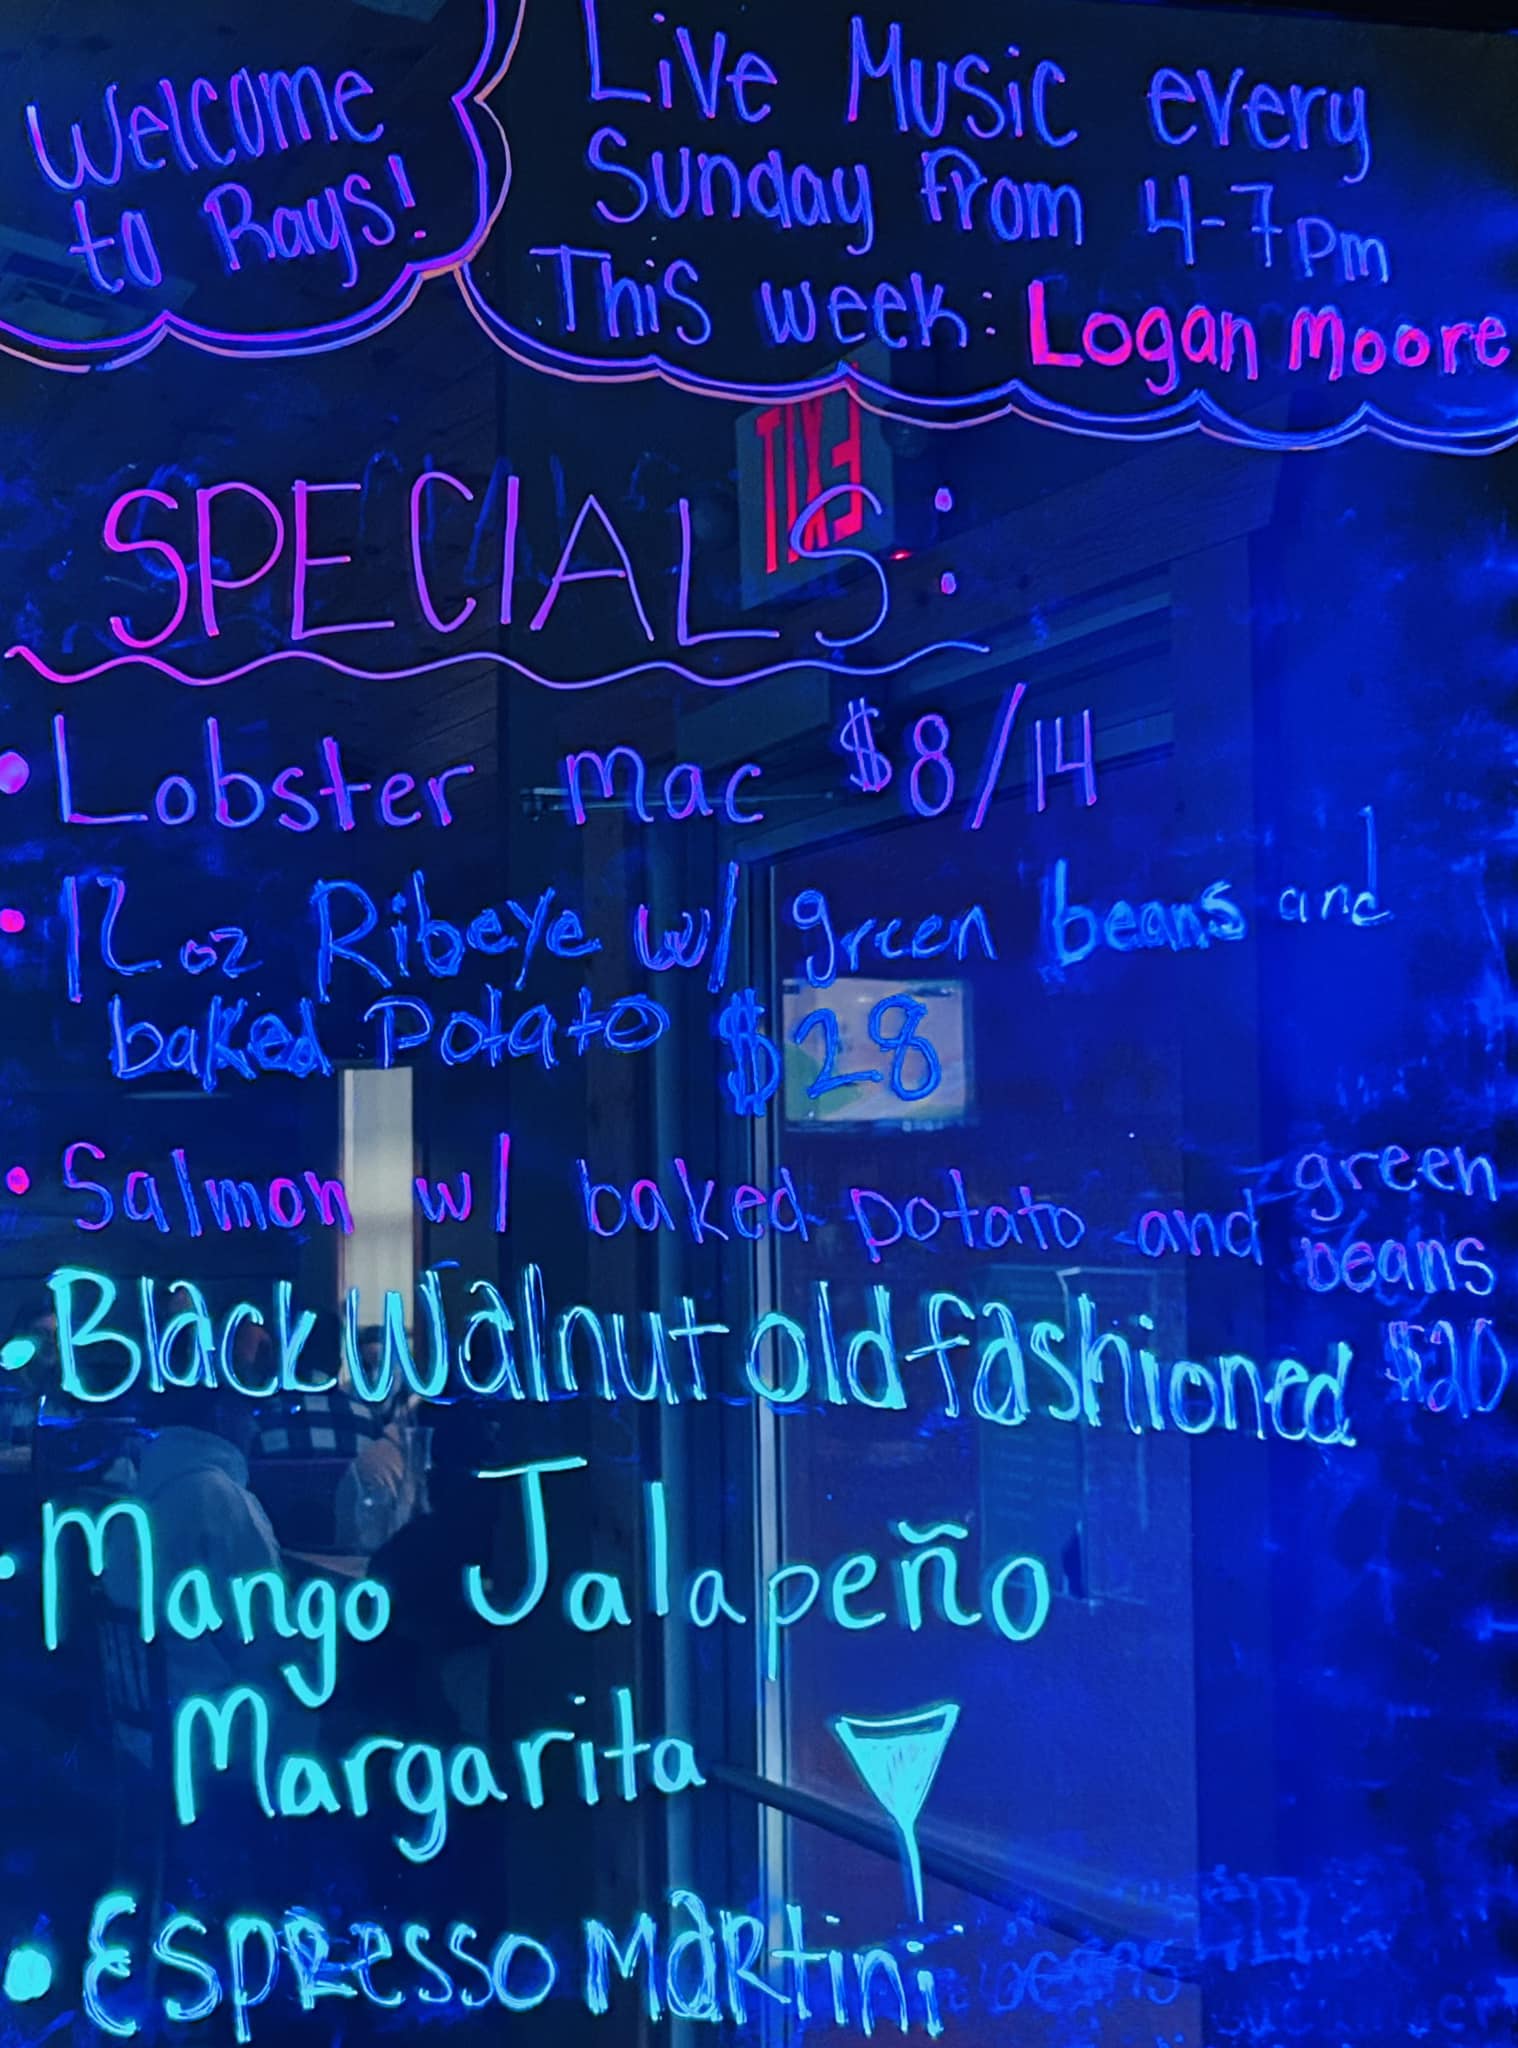 Welcome
to Rays!
Live Music every
Sunday from 4-7pm
This week: Logan Moore
EXIT
SPECIALS:
• Lobster mac $8/14
• 12 oz Ribeye w/ green beans and
baked Potato $28
• Salmon w/ baked potato and green
beans
$20
• Black Walnut old fashioned
• Mango Jalapeño
Margarita
• Espresso Martini